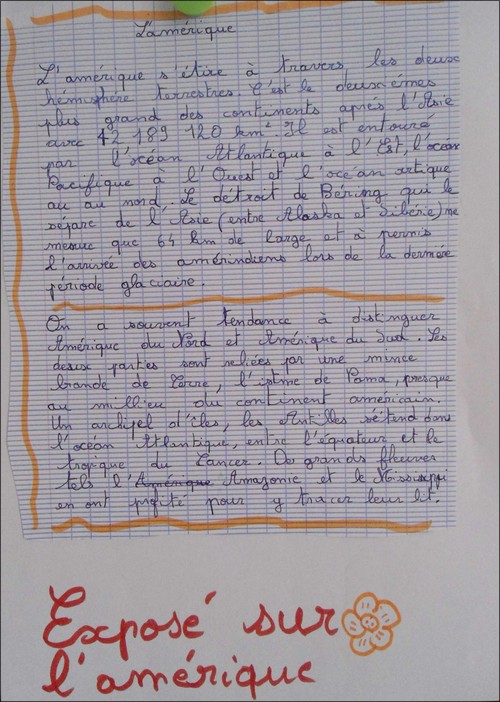 L'amérique
L'amérique s'étire à travers les deux
hémisphère terrestres. C'est le deuxièmes
plus grand des continents après l'Asie
avec 42 189 120 km². Il est entouré
par l'océan Atlantique à l'Est, l'océan
Pacifique à l'Ouest et l'océan artique
au au nord. Le détroit de Béring qui le
sépare de l'Asie (entre Alaska et Sibérie) ne
mesure que 64 km de large et à permis
l'arrivée des amérindiens lors de la dernière
période glaciaire.
On a souvent tendance à distinguer
Amérique du Nord et Amérique du Sud. Les
deux parties sont reliées par une mince
bande de terre, l'istme de Pama, presque
au millieu du continent américain.
Un archipel d'îles, les Antilles s'étend dans
l'océan Atlantique, entre l'équateur et le
tropique du Cancer. De grands fleuves
tels l'Amérique Amazonie et le Mississippi
en ont profité pour y tracer leur lit.
Exposé sur
l'amérique